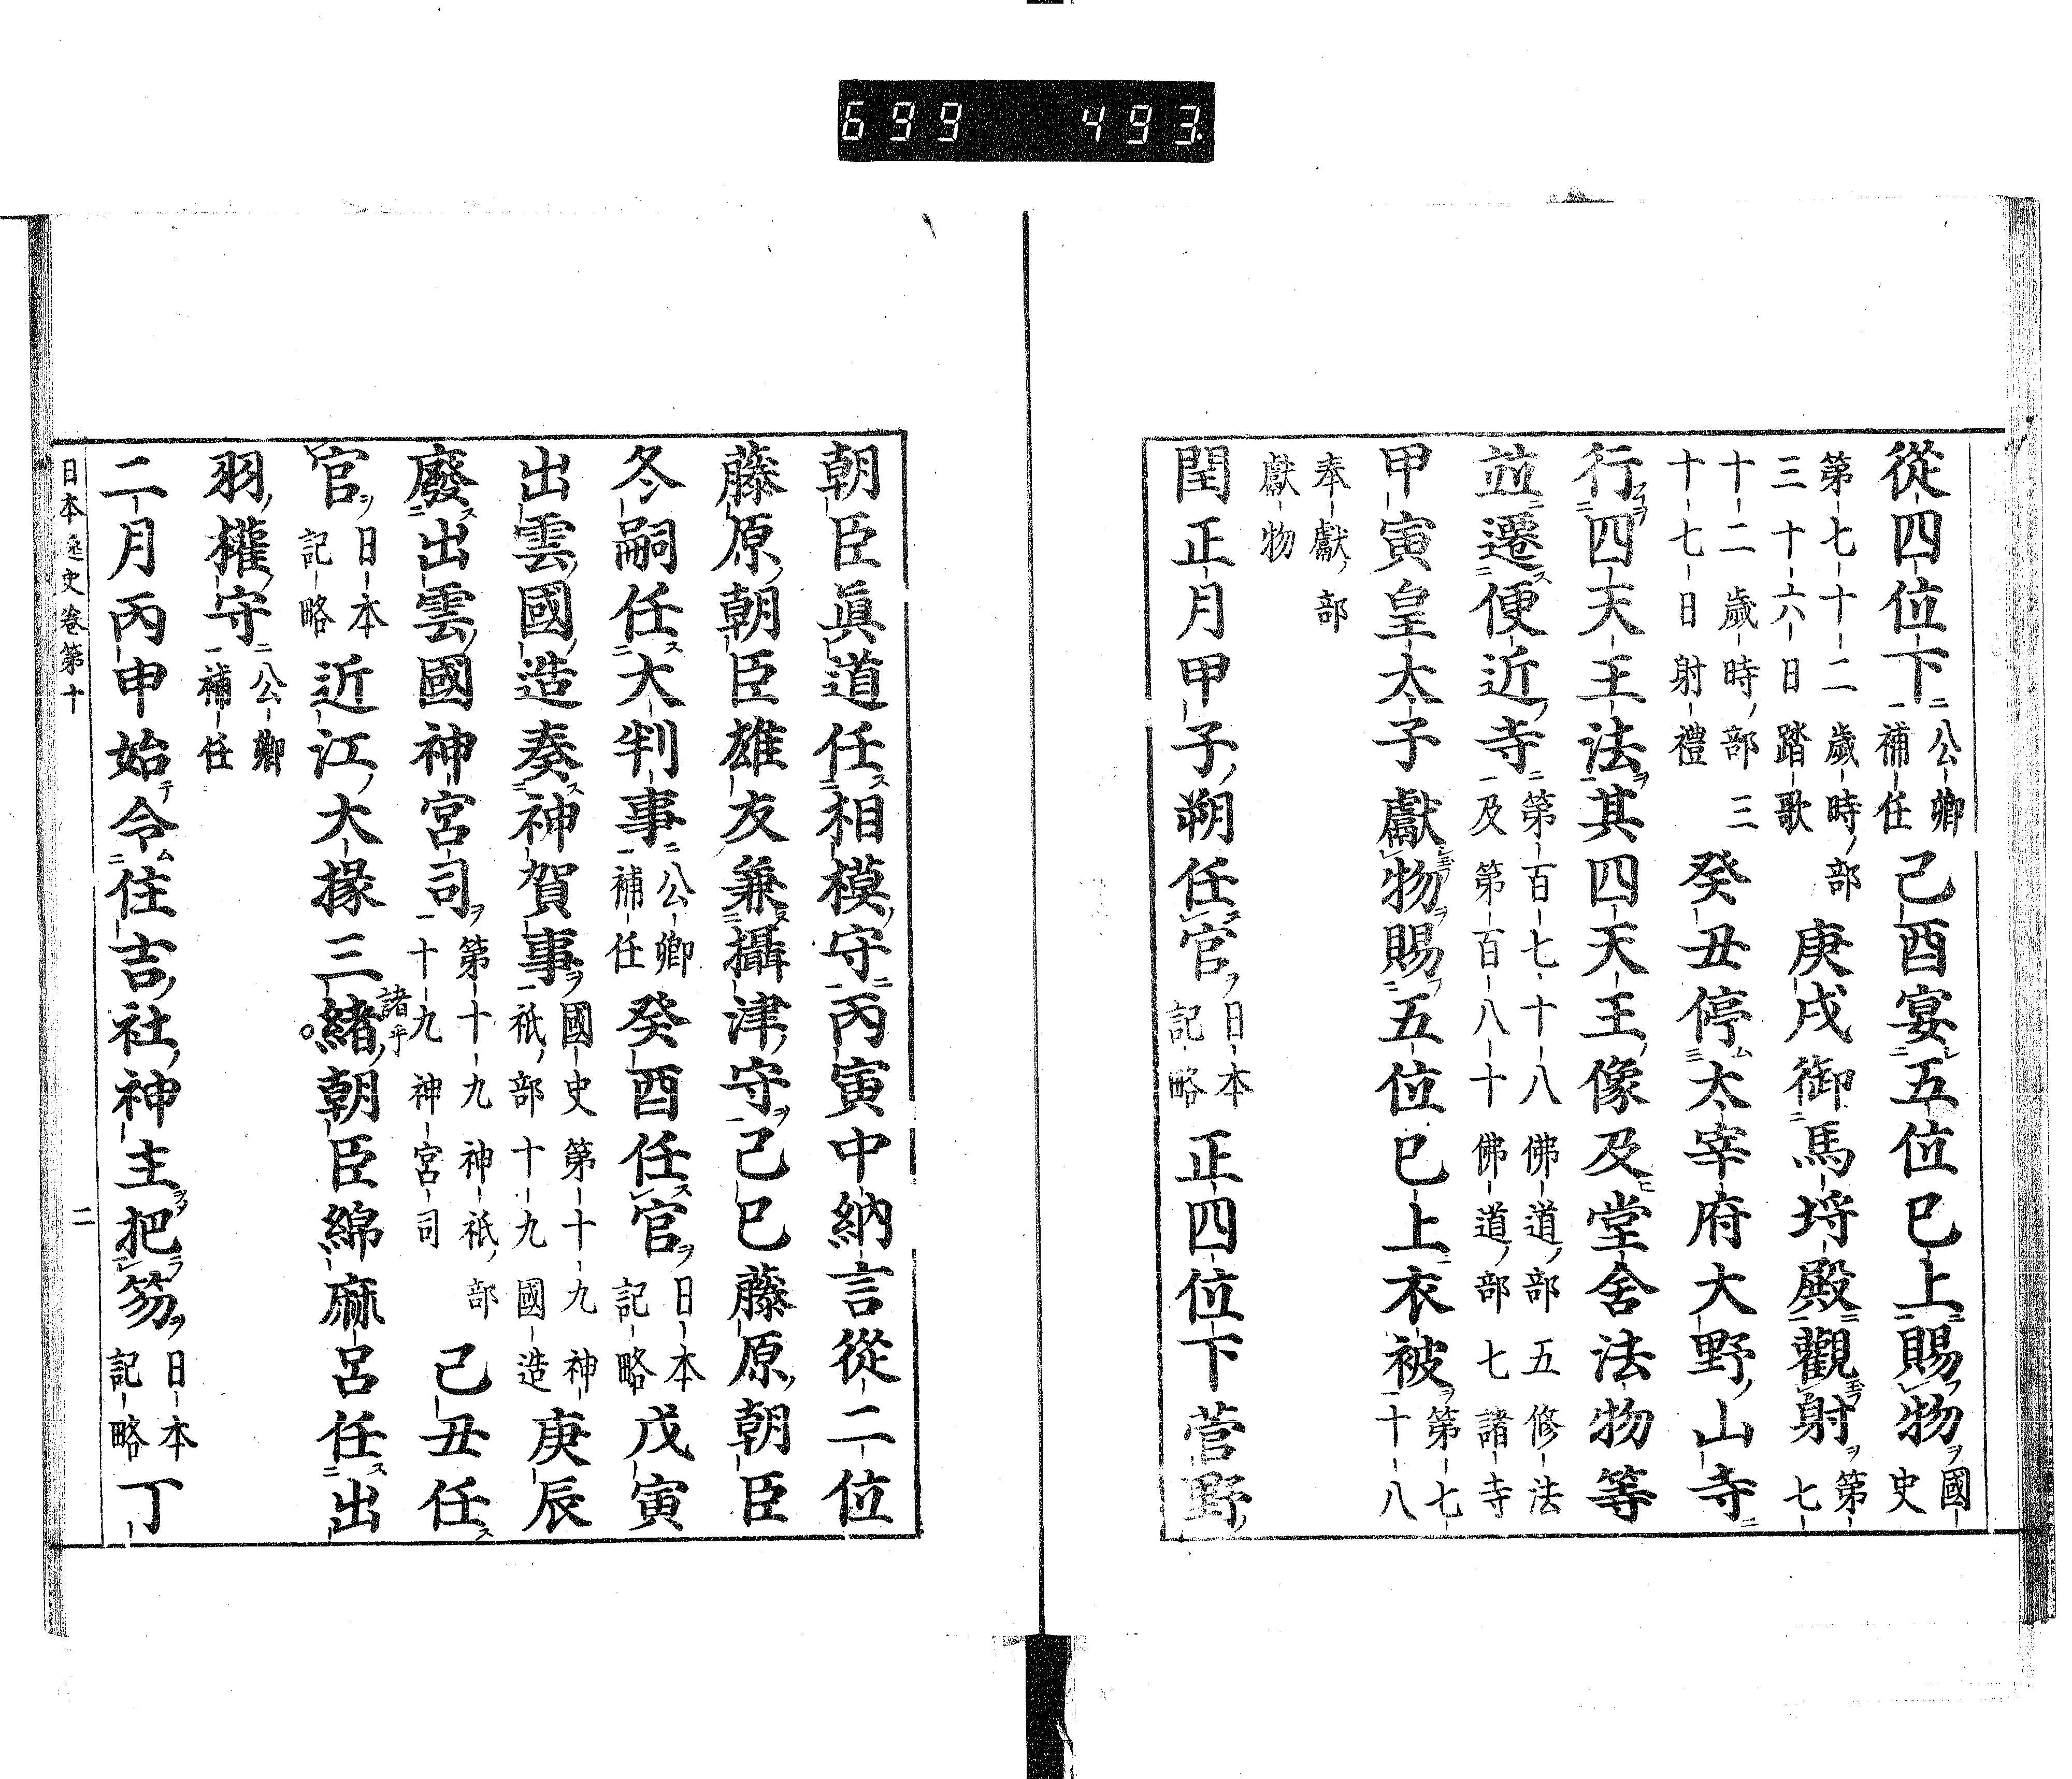 699 493
從四位下公卿補任己酉宴五位已上賜物國史
第七十二歲時部三十六日踏歌庚戌御馬埒殿觀射第七
十二歲時部三十七日射禮癸丑停太宰府大野山寺
行四天王法其四天王像及堂舍法物等
竝遷便近寺第百七十八佛道部五修法及第百八十佛道部七諸寺
甲寅皇太子獻物賜五位已上衣被第七十八
奉獻部獻物
閏正月甲子朔任官日本記略正四位下菅野
朝臣眞道任相模守丙寅中納言從二位
藤原朝臣雄友兼攝津守己巳藤原朝臣
冬嗣任大判事公卿補任癸酉任官日本記略戊寅
出雲國造奏神賀事國史第十九神祇部十九國造庚辰
廢出雲國神宮司第十九神祇部十九神宮司己丑任
官日本記略近江大掾三緖諸乎朝臣綿麻呂任出
羽權守公卿補任
二月丙申始令住吉社神主把笏日本記略丁
日本逸史卷第十 二